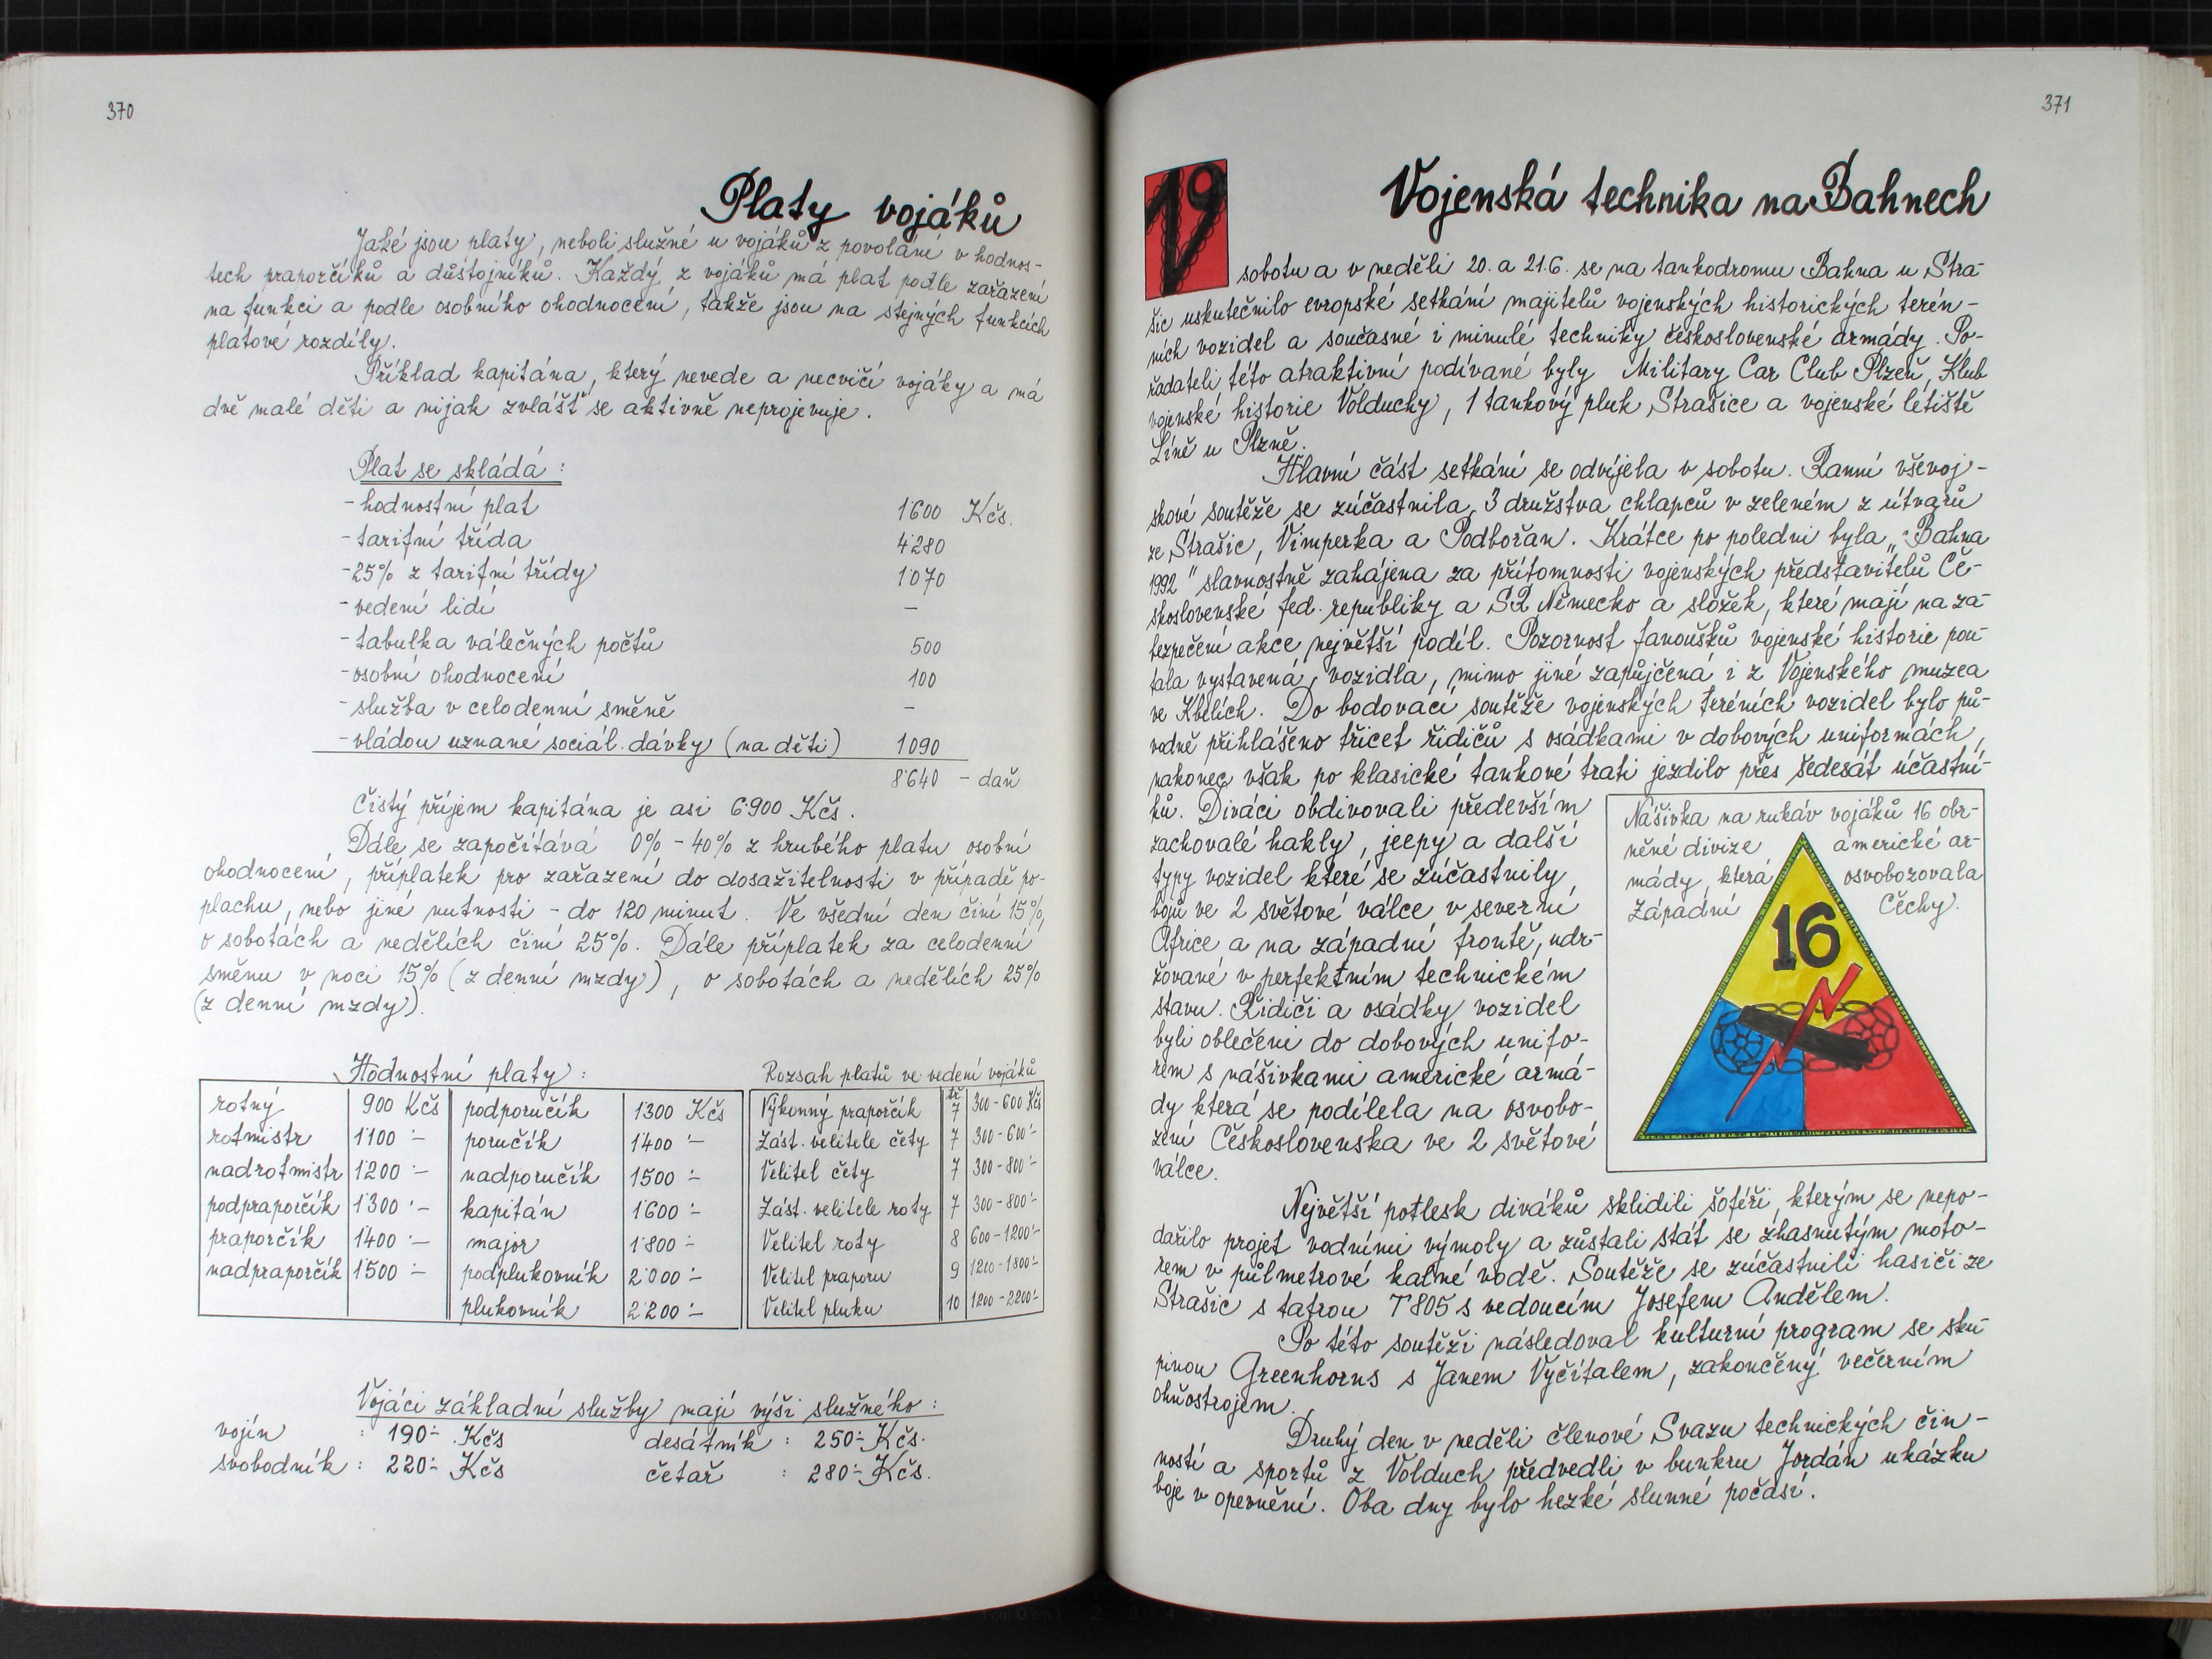 370
Platy vojáků
Jaké jsou platy, neboli služné u vojáků z povolání v hodnos-
tech praporčíků a důstojníků. Každý z vojáků má plat podle zařazení
na funkci a podle osobního ohodnocení, takže jsou na stejných funkcích
platové rozdíly.
Příklad kapitána, který nevede a necvičí vojáky a má
dvě malé děti a nijak zvlášť se aktivně neprojevuje.
Plat se skládá :
- hodnostní plat 1600 Kčs.
- tarifní třída 4280
- 25% z tarifní třídy 1070
- vedení lidí –
- tabulka válečných počtů 500
- osobní ohodnocení 100
- služba v celodenní směně –
- vládou uznané sociál. dávky (na děti) 1090
8640 - daň
Čistý příjem kapitána je asi 6900 Kčs.
Dále se započítává 0% - 40% z hrubého platu osobní
ohodnocení, příplatek pro zařazení do dosažitelnosti v případě po-
plachu, nebo jiné nutnosti - do 120 minut. Ve všední den činí 15%,
o sobotách a nedělích činí 25%. Dále příplatek za celodenní
směnu v noci 15% (z denní mzdy), o sobotách a nedělích 25%
(z denní mzdy).
Hodnostní platy : Rozsah platů ve vedení vojáků
tř.
rotný 900 Kčs podporučík 1300 Kčs Výkonný praporčík 7 300-600 Kčs
rotmistr 1100 :- poručík 1400 :- Zást. velitele čety 7 300-600:-
nadrotmistr 1200 :- nadporučík 1500 :- Velitel čety 7 300-800:-
podpraporčík 1300 :- kapitán 1600 :- Zást. velitele roty 7 300-800:-
praporčík 1400 :- major 1800 :- Velitel roty 8 600-1200:-
nadpraporčík 1500 :- podplukovník 2000 :- Velitel praporu 9 1200-1800:-
plukovník 2200 :- Velitel pluku 10 1200-2200:-
Vojáci základní služby mají výši služného :
vojín : 190:- Kčs desátník : 250:- Kčs.
svobodník : 220:- Kčs četař : 280:- Kčs.
371
V
Vojenská technika na Bahnech
sobotu a v neděli 20. a 21.6. se na tankodromu Bahna u Stra-
šic uskutečnilo evropské setkání majitelů vojenských historických terén-
ních vozidel a současné i minulé techniky československé armády. Po-
řadateli této atraktivní podívané byly Military Car Club Plzeň, Klub
vojenské historie Volduchy, 1 tankový pluk Strašice a vojenské letiště
Líně u Plzně.
Hlavní část setkání se odvíjela v sobotu. Ranní vševoj-
skové soutěže se zúčastnila 3 družstva chlapců v zeleném z útvarů
ze Strašic, Vimperka a Podbořan. Krátce po poledni byla „Bahna
1992" slavnostně zahájena za přítomnosti vojenských představitelů Če-
skoslovenské fed. republiky a SR Německo a složek, které mají na za-
bezpečení akce největší podíl. Pozornost fanoušků vojenské historie pou-
tala vystavená vozidla, mimo jiné zapůjčená i z Vojenského muzea
ve Kbelích. Do bodovací soutěže vojenských teréních vozidel bylo pů-
vodně přihlášeno třicet řidičů s osádkami v dobových uniformách,
nakonec však po klasické tankové trati jezdilo přes šedesát účastní-
ků. Diváci obdivovali především
zachovalé hakly, jeepy a další
typy vozidel které se zúčastnily
bojů ve 2 světové válce v severní
Africe a na západní frontě, udr-
žované v perfektním technickém
stavu. Řidiči a osádky vozidel
byli oblečeni do dobových unifo-
rem s nášivkami americké armá-
dy která se podílela na osvobo-
zení Československa ve 2 světové
válce.
Nášivka na rukáv vojáků 16 obr-
něné divize americké ar-
mády, která osvobozovala
západní Čechy.
16
Největší potlesk diváků sklidili šoféři, kterým se nepo-
dařilo projet vodními výmoly a zůstali stát se zhasnutým moto-
rem v půlmetrové kalné vodě. Soutěže se zúčastnili hasiči ze
Strašic s tatrou T805 s vedoucím Josefem Andělem.
Po této soutěži následoval kulturní program se sku-
pinou Greenhorns s Janem Vyčítalem, zakončený večerním
ohňostrojem.
Druhý den v neděli členové Svazu technických čin-
ností a sportů z Volduch předvedli v bunkru Jordán ukázku
boje v opevnění. Oba dny bylo hezké slunné počasí.